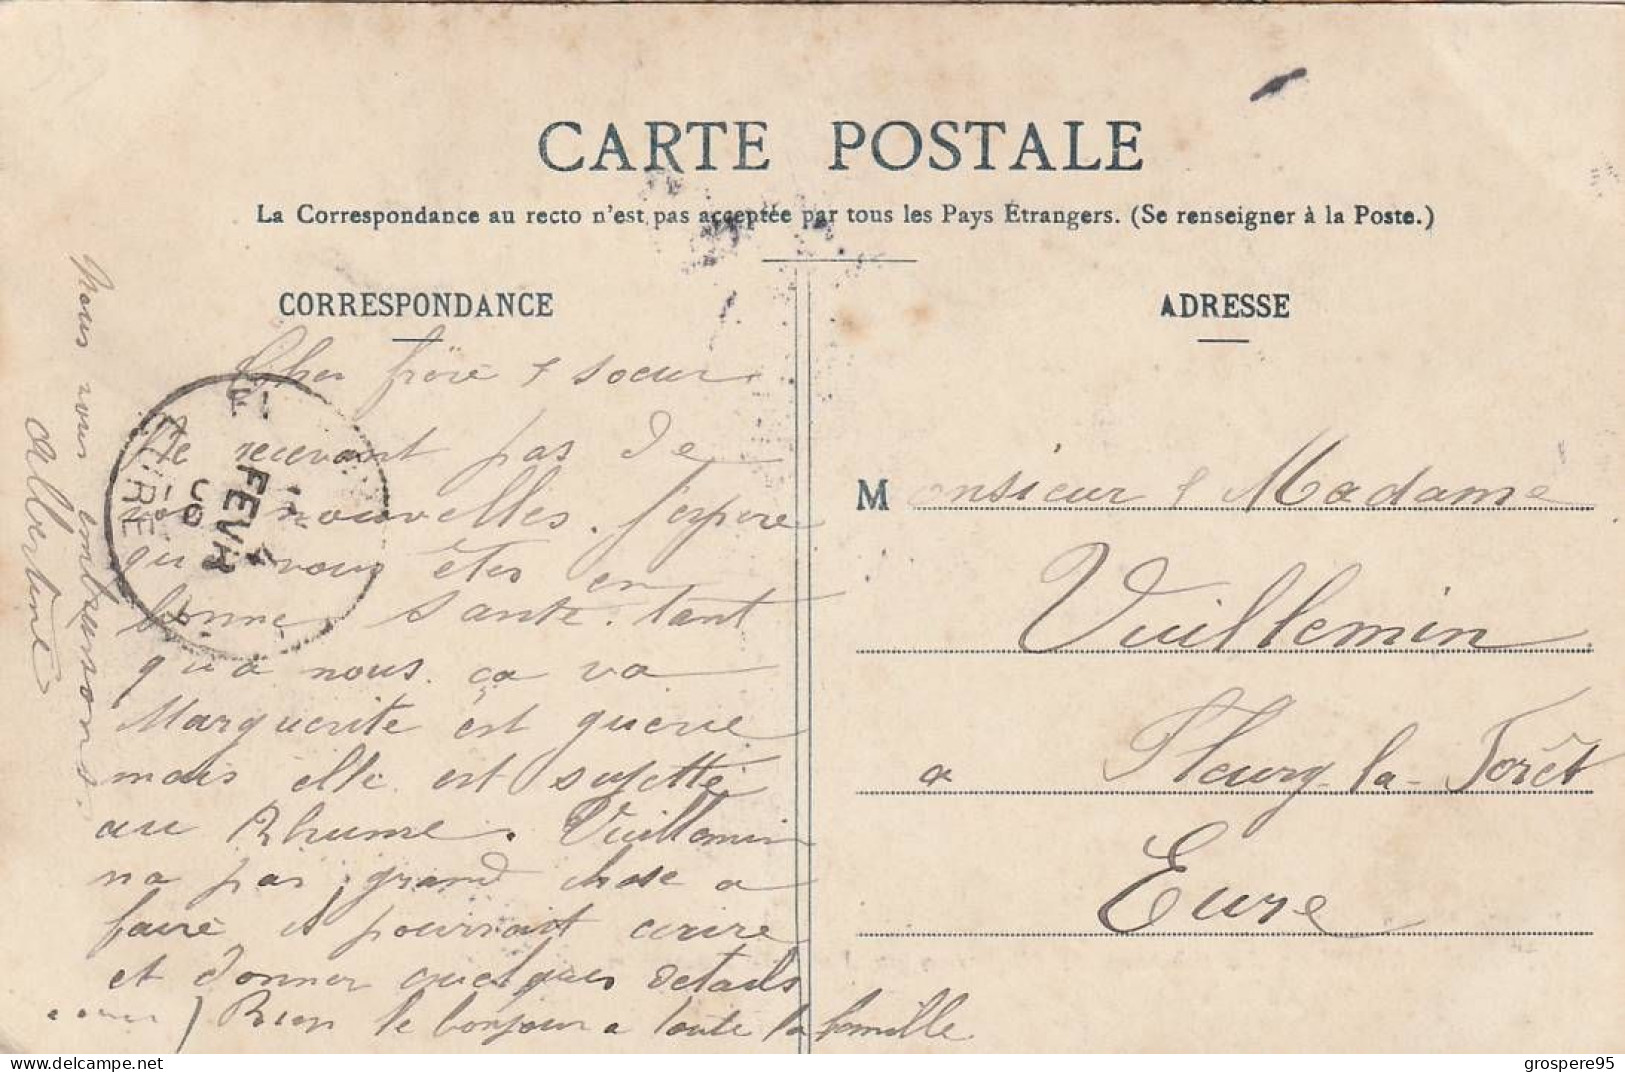 CARTE POSTALE
La Correspondance au recto n'est pas acceptée par tous les Pays Étrangers. (Se renseigner à la Poste.)
CORRESPONDANCE
Cher frère & soeur
Ne recevant pas de
vos nouvelles. J'espere
que vous êtes en
bonne sante. tant
qu'a nous. ça va
Marguerite est guerie
mais elle est sujette
au Rhume. Vuillemin
na pas grand chose a
faire il pourrait ecrire
et donner quelques details
Bien le bonjour a toute la famille
Nous vous embrassons.
Albertine
ADRESSE
Monsieur & Madame
Vuillemin
a Fleury-la-Forêt
Eure
4
FEVR
EURE
grospere95